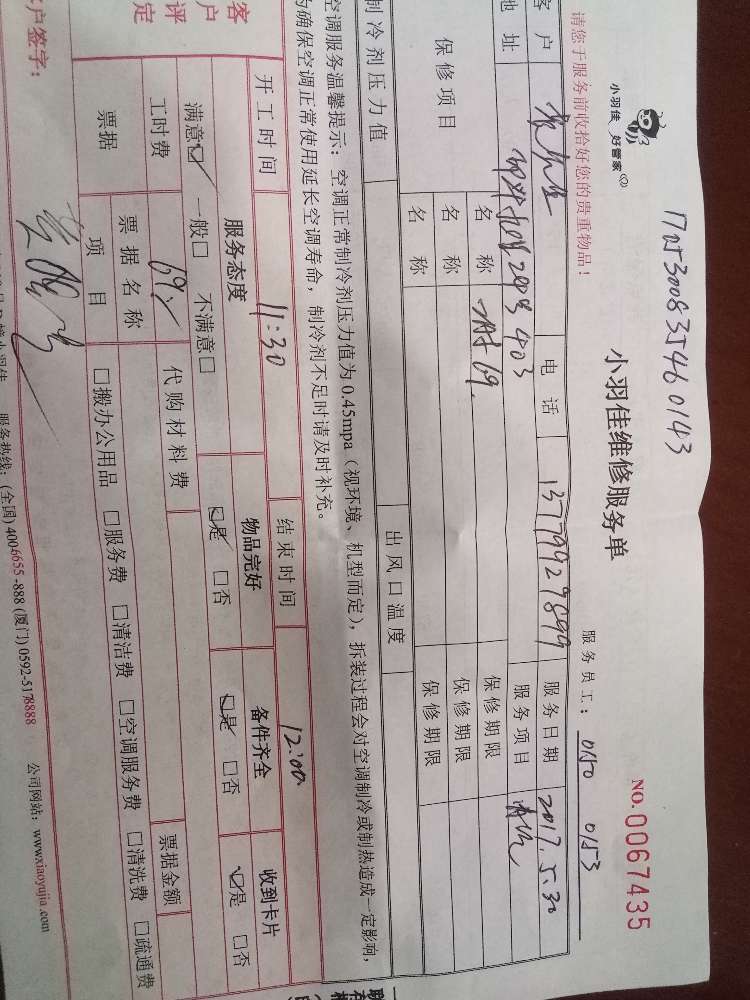 1705300835460143
小羽佳 好管家
小羽佳维修服务单
NO.0067435
请您于服务前收拾好您的贵重物品!
服务员工: 0150 0153
客户 电话 13779929899 服务日期 2017.5.30
地址 2009 403 服务项目
保修项目 名称 69 保修期限
名称 保修期限
名称 保修期限
制冷剂压力值 出风口温度
空调服务温馨提示: 空调正常制冷剂压力值为0.45mpa(视环境、机型而定), 拆装过程会对空调制冷或制热造成一定影响,
为确保空调正常使用延长空调寿命, 制冷剂不足时请及时补充。
开工时间 11:30 结束时间 12:00
客户评定 服务态度 物品完好 备件齐全 收到卡片
满意☑ 一般□ 不满意□ ☑是 □否 ☑是 □否 ☑是 □否
工时费 69 代购材料费
票据 票据名称 票据金额
项目 □搬办公用品 □服务费 □清洁费 □空调服务费 □清洗费 □疏通费
客户签字:
小羽佳 服务热线: (全国) 4006655-888 (厦门) 0592-5178888 公司网站: www.xiaoyujia.com